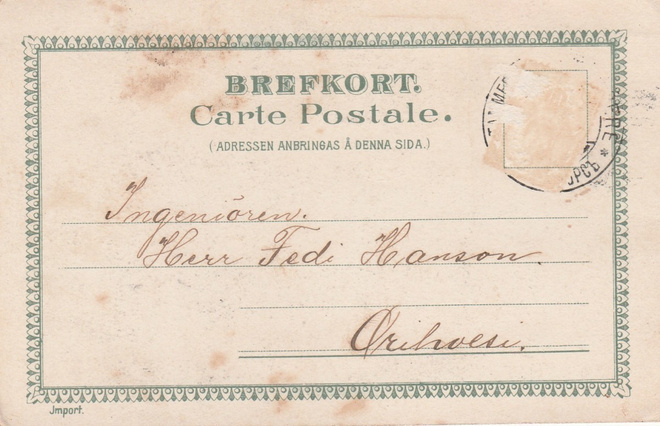 BREFKORT.
Carte Postale.
(ADRESSEN ANBRINGAS Å DENNA SIDA.)
Ingeniören.
Herr Fedi Hanson.
Orihvesi.
Import.